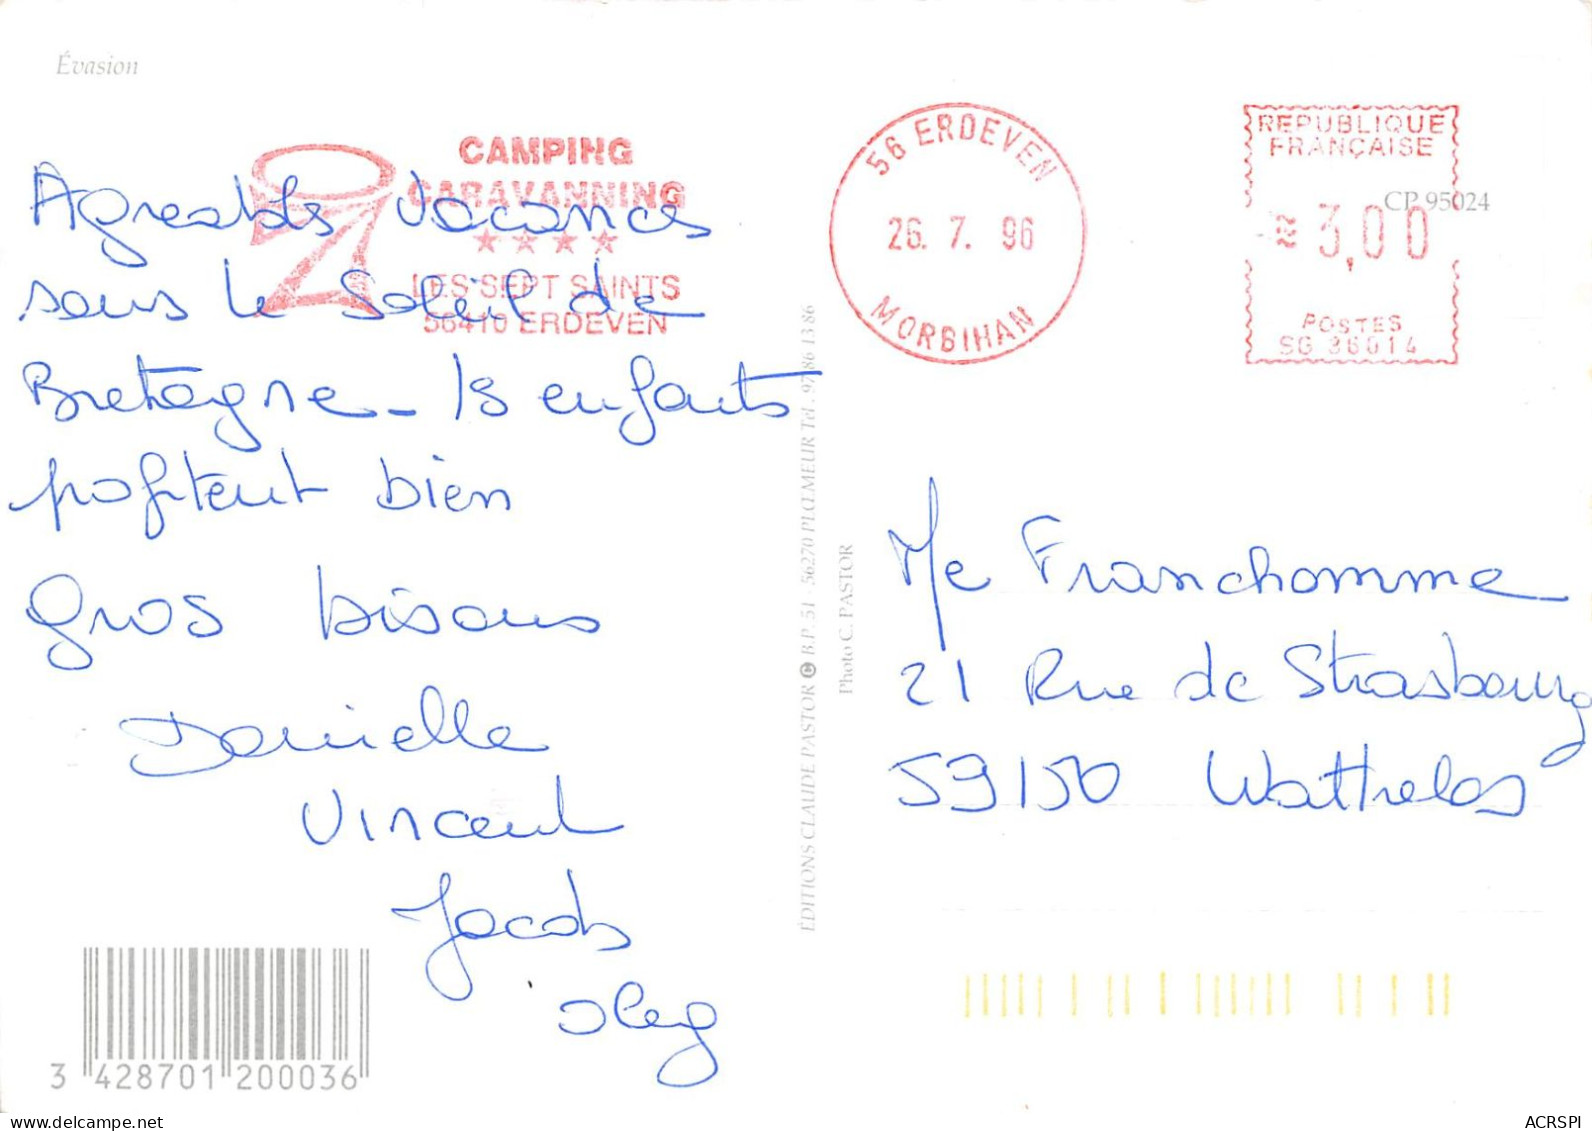 Évasion
CAMPING
CARAVANNING
★★★★
LES SEPT SAINTS
56410 ERDEVEN
56 ERDEVEN
26. 7. 96
MORBIHAN
REPUBLIQUE
FRANÇAISE
CP 95024
≋ 3,00
POSTES
SG 36614
Agreables vacances
sous le Soleil de
Bretagne - ls enfants
profitent bien
gros bisous
Danielle
Vincent
Jacob
Oleg
ÉDITIONS CLAUDE PASTOR © B.P. 51 - 56270 PLŒMEUR Tél. 97 86 13 86
Photo C. PASTOR
Me Franchomme
21 Rue de Strasbourg
59150 Wattrelos
3 428701 200036
www.delcampe.net
ACRSPI